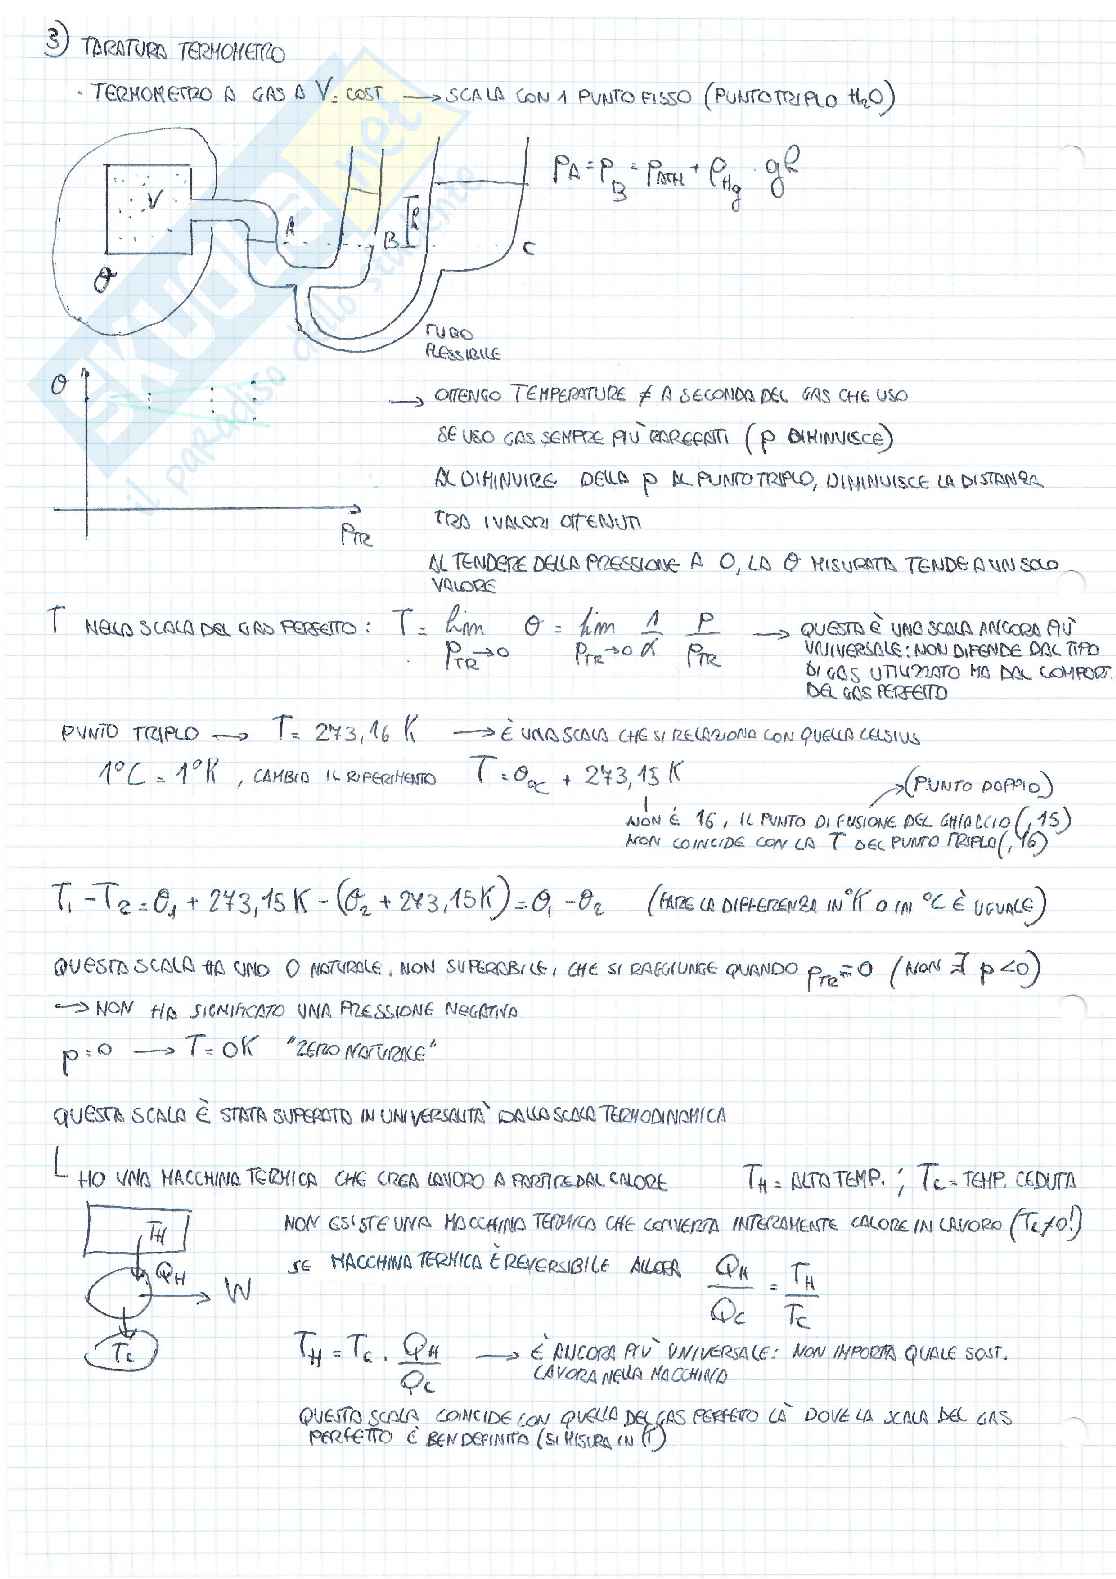 3) TARATURA TERMOMETRO
· TERMOMETRO A GAS A V=COST → SCALA CON 1 PUNTO FISSO (PUNTO TRIPLO H₂O)
V
A
B
h
C
θ
pA = pB = pATM + ρHg · gh
TUBO
FLESSIBILE
θ
pTR
→ OTTENGO TEMPERATURE ≠ A SECONDA DEL GAS CHE USO
SE USO GAS SEMPRE PIÙ RAREFATTI (p DIMINUISCE)
AL DIMINUIRE DELLA p AL PUNTO TRIPLO, DIMINUISCE LA DISTANZA
TRA I VALORI OTTENUTI
AL TENDERE DELLA PRESSIONE A 0, LA θ MISURATA TENDE A UN SOLO
VALORE
T NELLA SCALA DEL GAS PERFETTO: T = lim pTR→0 θ = lim pTR→0 1/α p/pTR → QUESTA È UNA SCALA ANCORA PIÙ
UNIVERSALE: NON DIPENDE DAL TIPO
DI GAS UTILIZZATO MA DAL COMPORT.
DEL GAS PERFETTO
PUNTO TRIPLO → T = 273,16 K → È UNA SCALA CHE SI RELAZIONA CON QUELLA CELSIUS
1°C = 1°K, CAMBIA IL RIFERIMENTO T = θ°C + 273,15 K
→ (PUNTO DOPPIO)
NON È 16, IL PUNTO DI FUSIONE DEL GHIACCIO (,15)
NON COINCIDE CON LA T DEL PUNTO TRIPLO (,16)
T₁ - T₂ = θ₁ + 273,15 K - (θ₂ + 273,15 K) = θ₁ - θ₂ (FARE LA DIFFERENZA IN °K O IN °C È UGUALE)
QUESTA SCALA HA UNO 0 NATURALE, NON SUPERABILE, CHE SI RAGGIUNGE QUANDO pTR = 0 (NON ∃ p<0)
→ NON HA SIGNIFICATO UNA PRESSIONE NEGATIVA
p = 0 → T = 0K "ZERO NATURALE"
QUESTA SCALA È STATA SUPERATA IN UNIVERSALITÀ DALLA SCALA TERMODINAMICA
HO UNA MACCHINA TERMICA CHE CREA LAVORO A PARTIRE DAL CALORE TH = ALTA TEMP. ; TC = TEMP. CEDUTA
NON ESISTE UNA MACCHINA TERMICA CHE CONVERTA INTERAMENTE CALORE IN LAVORO (TC≠0!)
TH
QH
W
TC
SE MACCHINA TERMICA È REVERSIBILE ALLORA QH/QC = TH/TC
TH = TC · QH/QC → È ANCORA PIÙ UNIVERSALE: NON IMPORTA QUALE SOST.
LAVORA NELLA MACCHINA
QUESTA SCALA COINCIDE CON QUELLA DEL GAS PERFETTO LÀ DOVE LA SCALA DEL GAS
PERFETTO È BEN DEFINITA (SI MISURA IN T)
SKUOLA.net
il paradiso dello studente